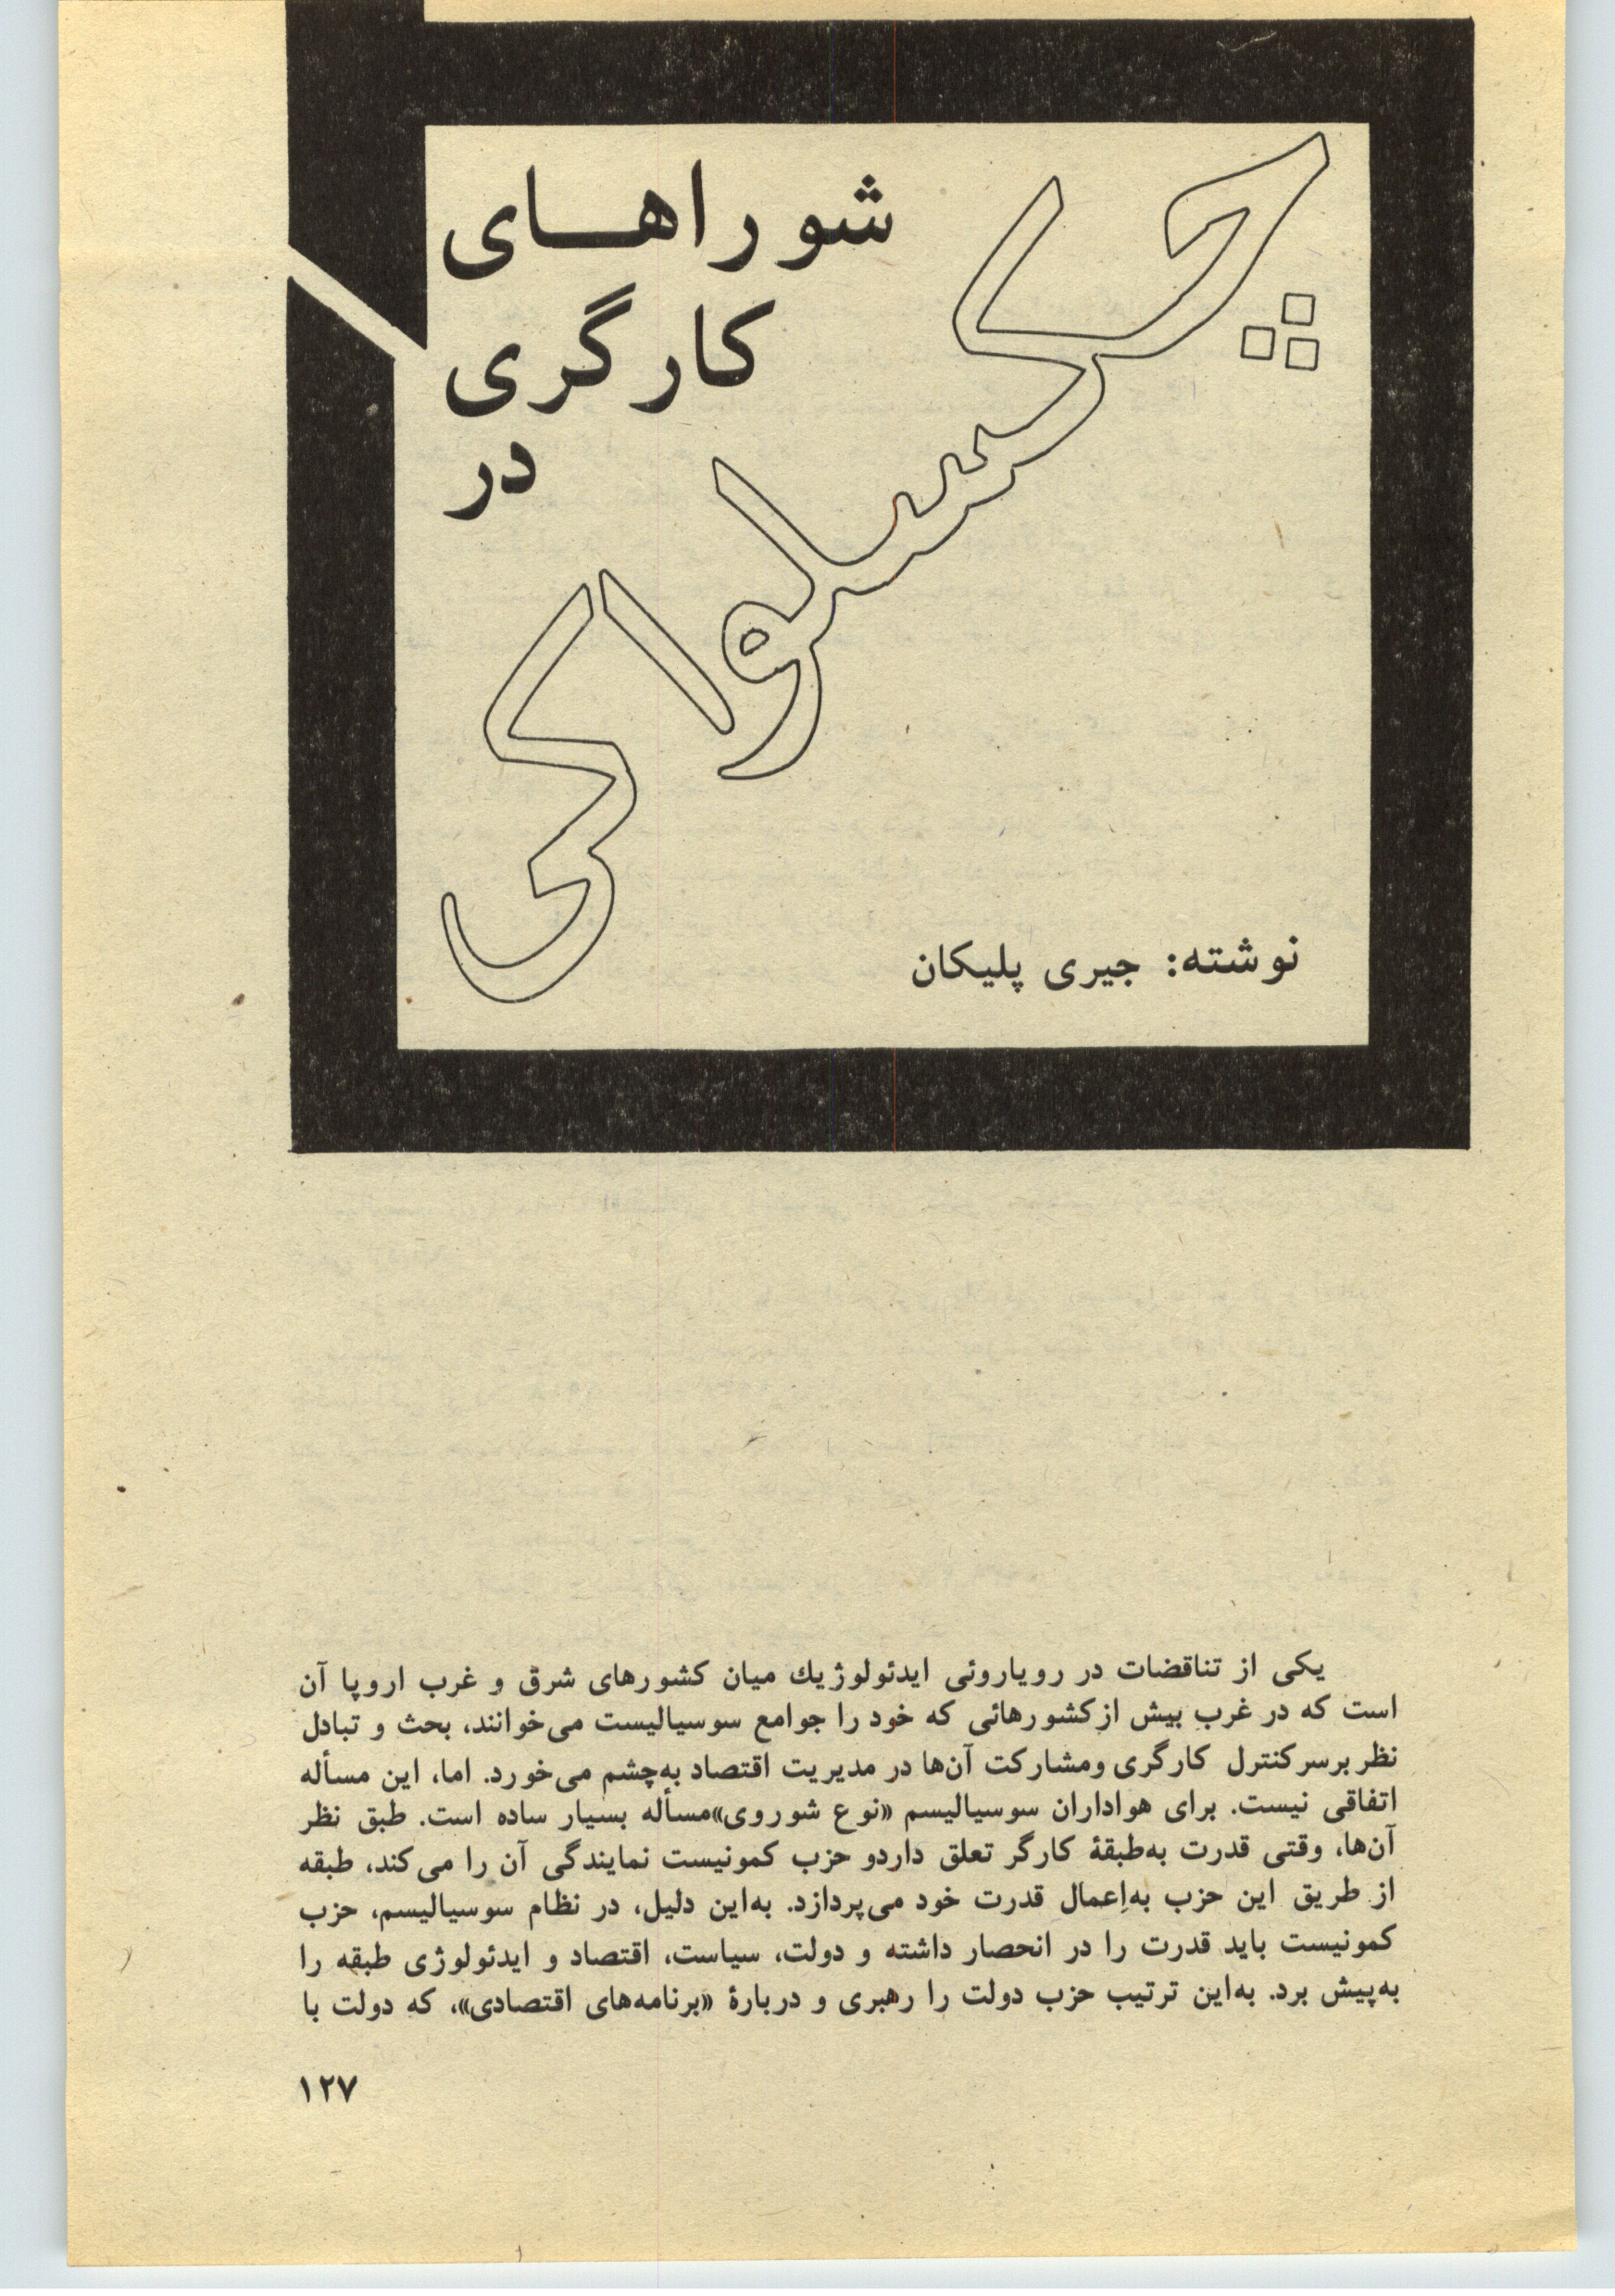 شوراهای
کارگری
در
چکسلواکی
نوشته: جیری پلیکان
یکی از تناقضات در رویاروئی ایدئولوژیك میان کشورهای شرق و غرب اروپا آن
است که در غرب بیش از کشورهائی که خود را جوامع سوسیالیست می‌خوانند، بحث و تبادل
نظر برسر کنترل کارگری ومشارکت آن‌ها در مدیریت اقتصاد به‌چشم می‌خورد. اما، این مسأله
اتفاقی نیست. برای هواداران سوسیالیسم «نوع شوروی»مسأله بسیار ساده است. طبق نظر
آن‌ها، وقتی قدرت به‌طبقهٔ کارگر تعلق داردو حزب کمونیست نمایندگی آن را می‌کند، طبقه
از طریق این حزب به‌اِعمال قدرت خود می‌پردازد. به‌این دلیل، در نظام سوسیالیسم، حزب
کمونیست باید قدرت را در انحصار داشته و دولت، سیاست، اقتصاد و ایدئولوژی طبقه را
به‌پیش برد. به‌این ترتیب حزب دولت را رهبری و دربارهٔ «برنامه‌های اقتصادی»، که دولت با
۱۲۷